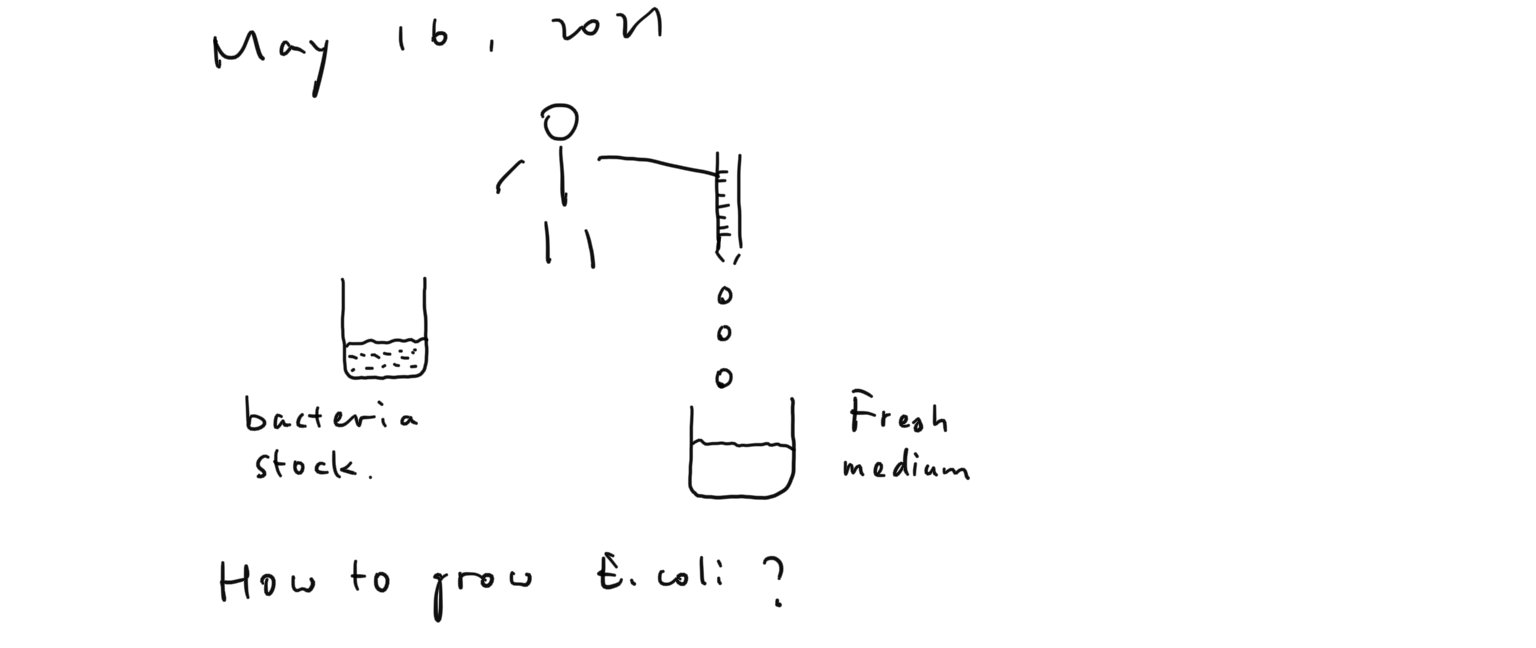 May 16, 2021
bacteria
stock.
Fresh
medium
How to grow E. coli?